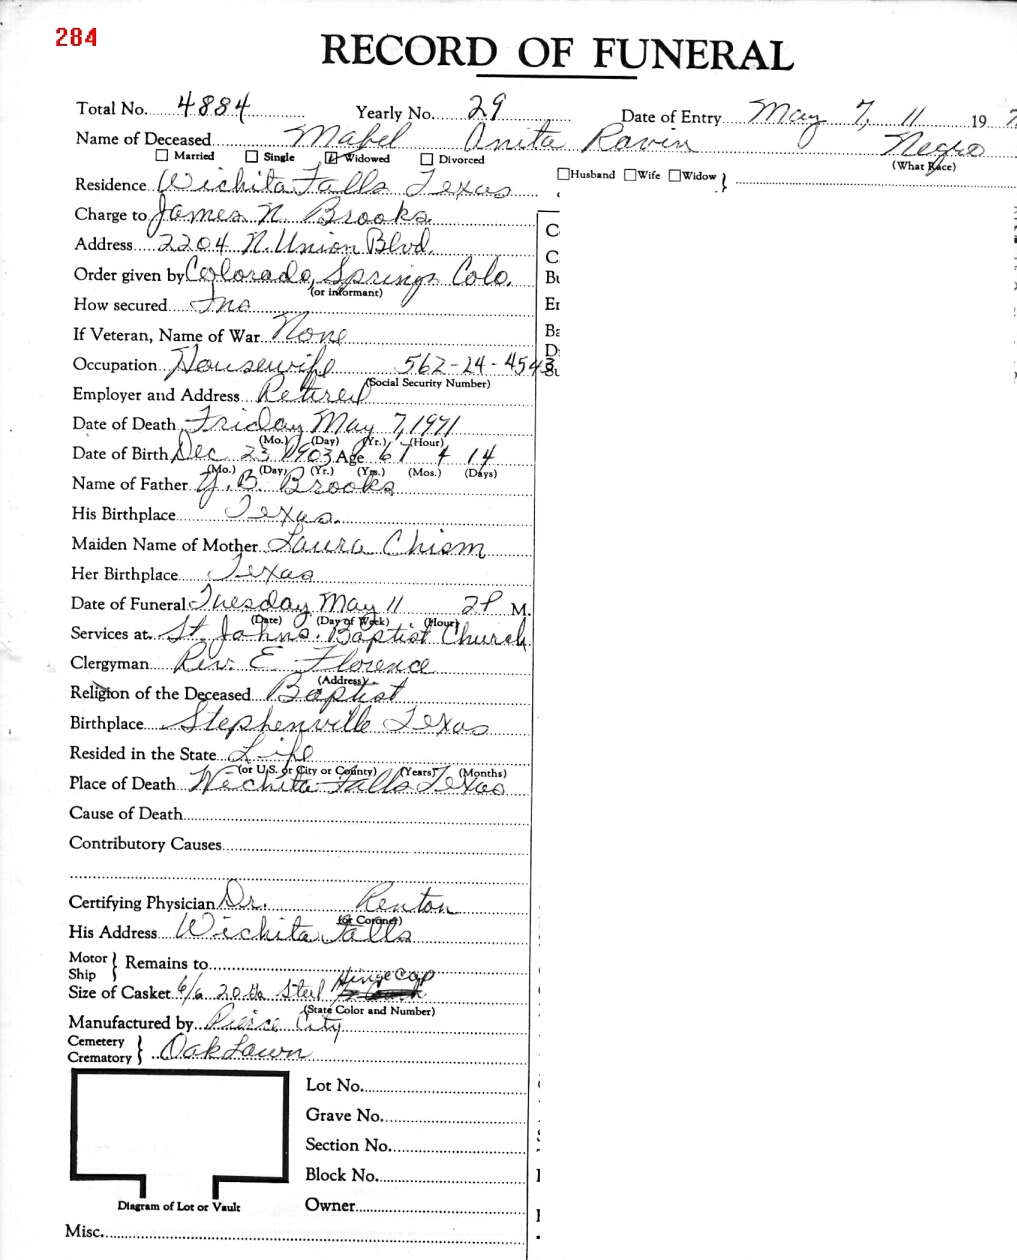 284
RECORD OF FUNERAL
Total No. 4884 Yearly No. 29 Date of Entry May 7, 11 19
Name of Deceased Mabel Anita Ravin Negro
Married Single Widowed Divorced (What Race)
Residence Wichita Falls Texas Husband Wife Widow }
Charge to James N. Brooks
Address 2204 N. Union Blvd.
Order given by Colorado Springs Colo.
(or informant)
How secured Ins
If Veteran, Name of War None
Occupation Housewife 562-24-4543
(Social Security Number)
Employer and Address Retired
Date of Death Friday May 7, 1971
(Mo.) (Day) (Yr.) (Hour)
Date of Birth Dec 23 1903 Age 67 4 14
(Mo.) (Day) (Yr.) (Yrs.) (Mos.) (Days)
Name of Father Y. B. Brooks
His Birthplace Texas
Maiden Name of Mother Laura Chism
Her Birthplace Texas
Date of Funeral Tuesday May 11 2 P M.
(Date) (Day of Week) (Hour)
Services at St. Johns Baptist Church
Clergyman Rev. E Florence
(Address)
Religion of the Deceased Baptist
Birthplace Stephenville Texas
Resided in the State Life
(or U.S. or City or County) (Years) (Months)
Place of Death Wichita Falls Texas
Cause of Death
Contributory Causes
Certifying Physician Dr. Renton
(or Coroner)
His Address Wichita Falls
Motor Ship } Remains to
Size of Casket 6/6 20 Ga Steel Hinge Cap
(State Color and Number)
Manufactured by Pierce City
Cemetery Crematory } Oak Lawn
Lot No.
Grave No.
Section No.
Block No.
Diagram of Lot or Vault
Owner
Misc.